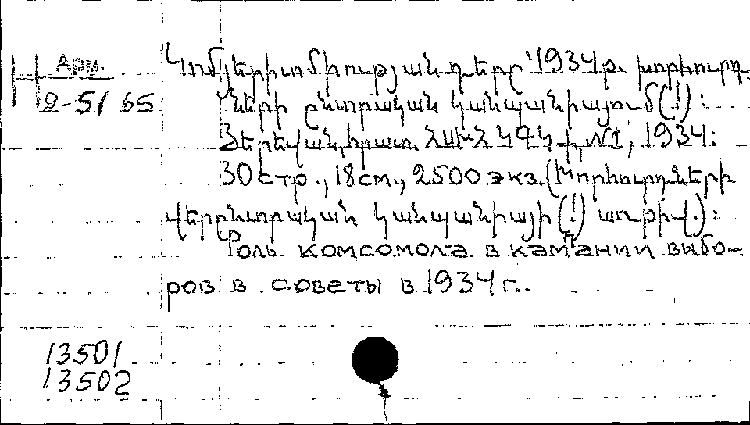 Арм.
2-51 65
Կոմյերիտմիության դերը 1934թ. խորհուրդ-
ների ընտրական կամպանիայում(!):
Յերեվան, հրատ. ՀԱՄԼԿՅԵՄ-ի, №1, 1934:
30 стр., 18 см., 2500 экз. (Խորհուրդների
վերընտրական կամպանիայի(!) առթիվ.):
Роль комсомола в кампании выбо-
ров в советы в 1934 г..
13501
13502